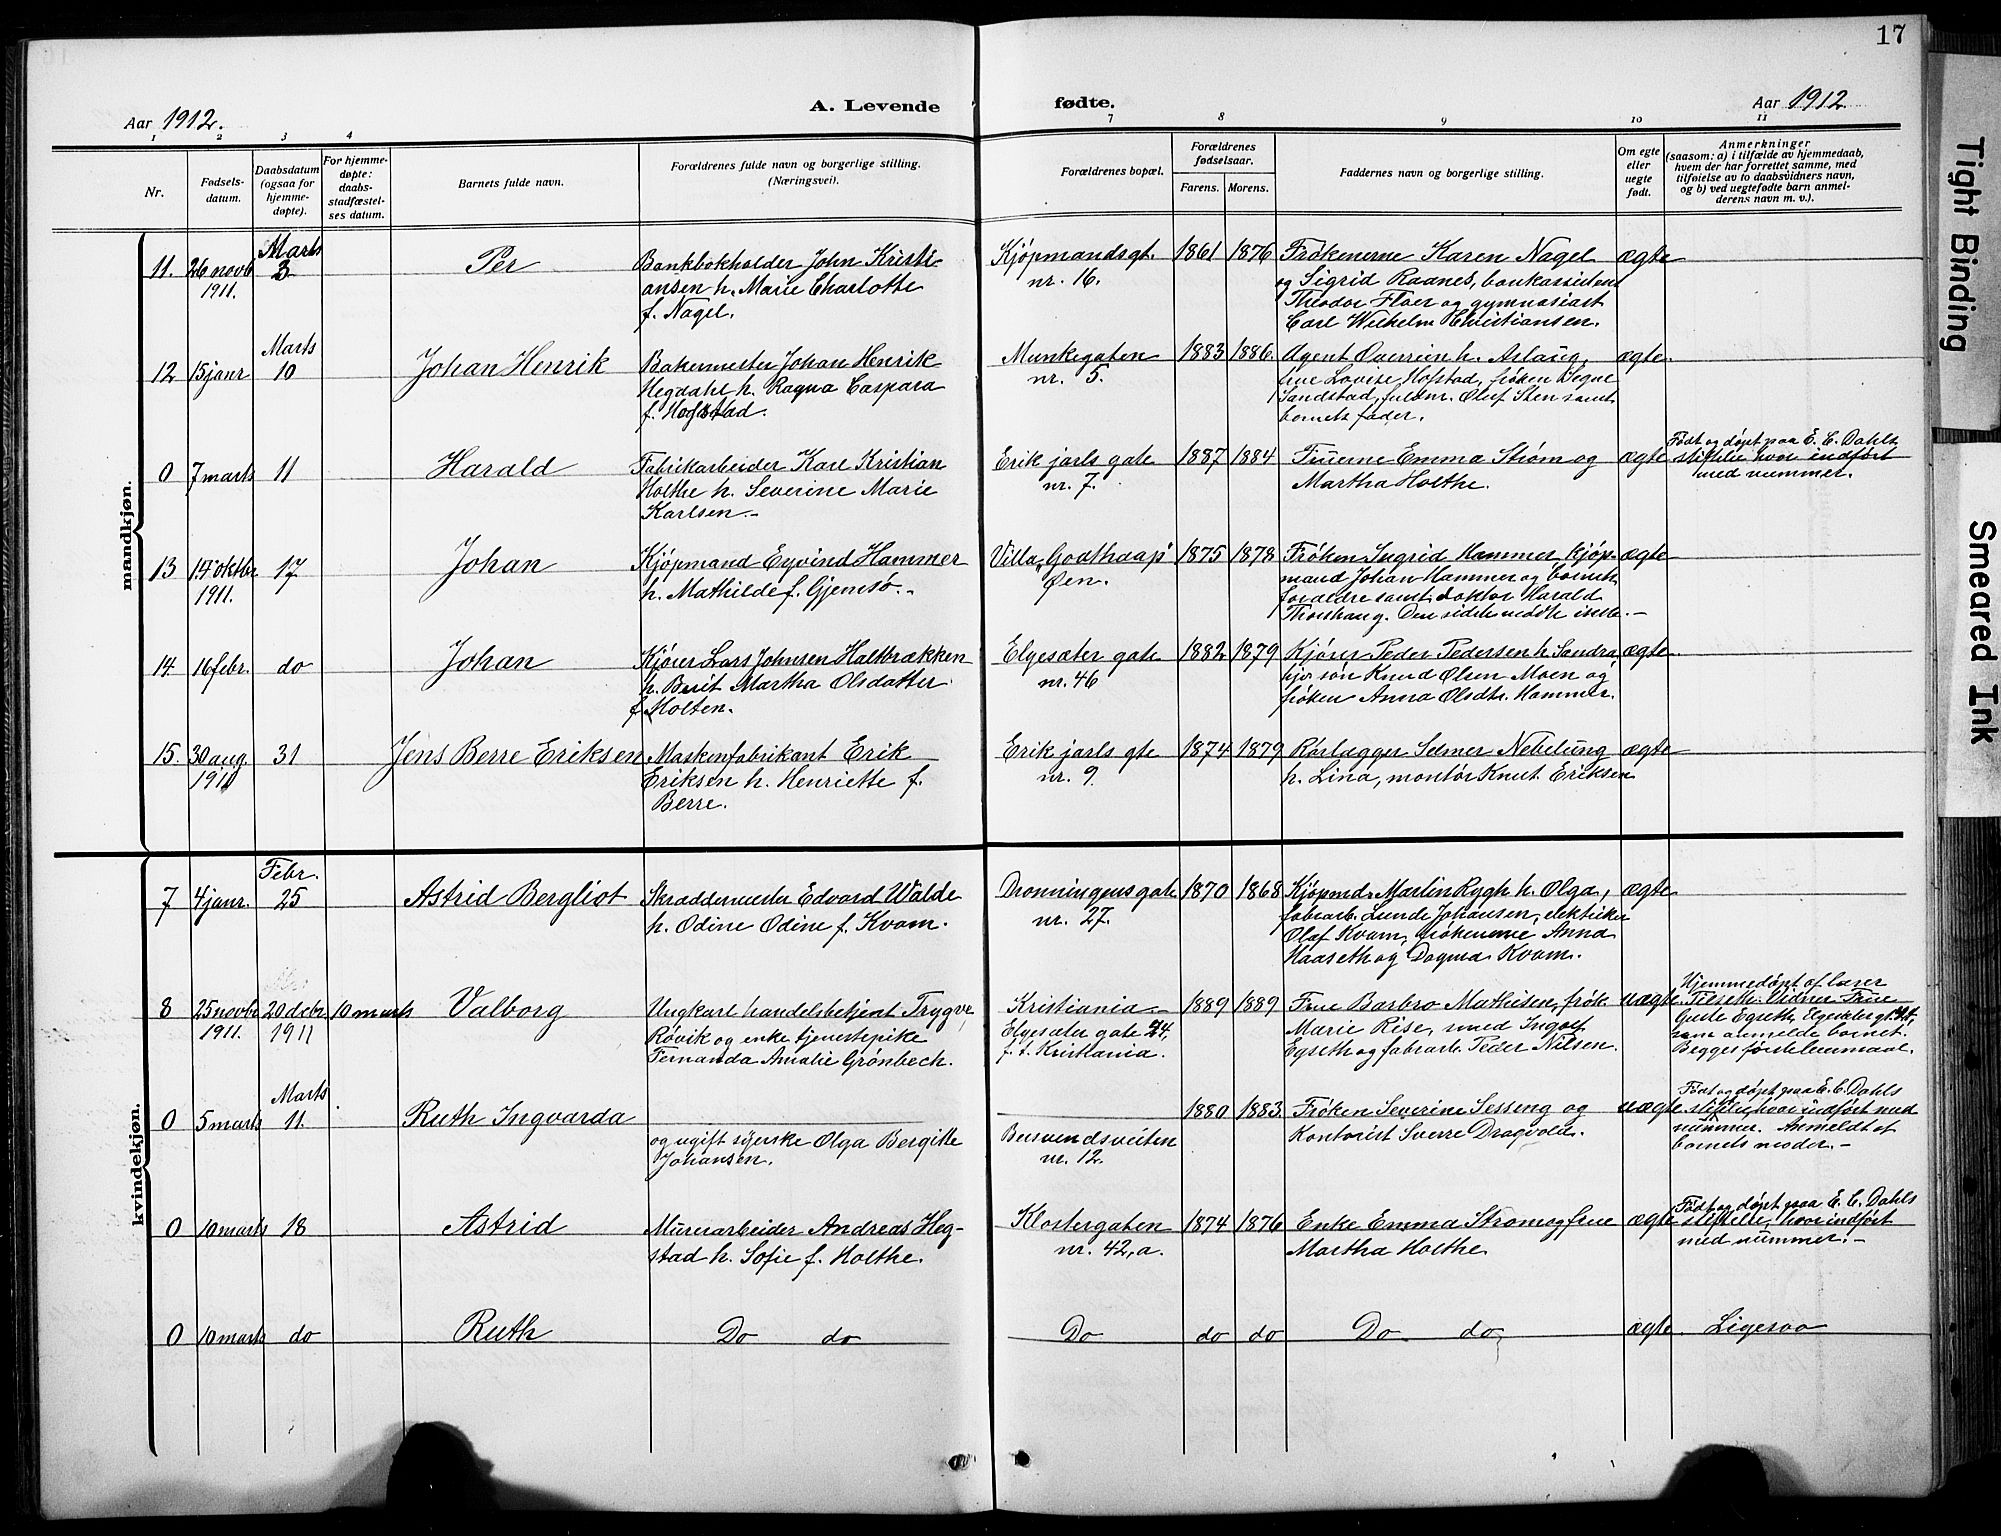 17
Aar 1912.
A. Levende fødte.
Aar 1912
1 2 3 4 7 8 9 10 11
Nr.
Fødsels-
datum.
Daabsdatum
(ogsaa for
hjemme-
døpte).
For hjemme-
døpte:
daabs-
stadfæstel-
ses datum.
Barnets fulde navn.
Forældrenes fulde navn og borgerlige stilling.
(Næringsvei).
Forældrenes bopæl.
Forældrenes
fødselsaar.
Farens. Morens.
Faddernes navn og borgerlige stilling.
Om egte
eller
uegte
født.
Anmerkninger
(saasom: a) i tilfælde av hjemmedaab,
hvem der har forrettet samme, med
tilføielse av to daabsvidners navn,
og b) ved uegtefødte barn anmel-
derens navn m. v.).
mandkjøn.
11. 26 novb
1911.
Marts
3
Per
Bankbokholder John Kristi-
ansen h. Marie Charlotte
f. Nagel.
Kjøpmandsgt.
nr. 16.
1861 1876
Frøkenerne Karen Nagel
og Sigrid Raanes, bankassistent
Theodor Floer og gymnasiast
Carl Wilhelm Christiansen.
ægte
12 15 janr
Marts
10
Johan Henrik
Bakermester Johan Henrik
Hegdahl h. Ragna Caspara
f. Hofstad.
Munkegaten
nr. 5.
1883 1886
Agent Overrein h. Aslaug,
frue Lovise Hofstad, frøken Signe
Sandstad, fuldm. Oluf Sten samt
barnets fader.
ægte.
0 7 marts 11
Harald
Fabrikarbeider Karl Kristian
Holthe h. Severine Marie
Karlsen.
Erik jarls gate
nr. 7.
1887 1884
Fruerne Emma Strøm og
Martha Holthe.
ægte
Født og døpt paa E. C. Dahls
stiftelse, hvor indført
med nummer.
13 14 oktbr
1911.
17
Johan
Kjøpmand Eyvind Hammer
h. Mathilde f. Gjemsø.
Villa „Godthaap"
Øen.
1875 1878
Frøken Ingrid Hammer, kjøp-
mand Johan Hammer og barnets
forældre samt doktor Harald
Thorshaug. Den sidste mødte ikke.
ægte
14. 16 febr. do
Johan
Kjører Lars Johnsen Haltbrækken
h. Berit Martha Olsdatter
f. Holten.
Elgesæter gate
nr. 46
1882 1879
Kjører Peder Pedersen h. Sendra,
søn Knud Olsen Moen og
frøken Anna Olsdtr. Hammer.
ægte
15. 30 aug.
1911
31
Jens Berre Eriksen
Maskenfabrikant Erik
Eriksen h. Henriette f.
Berre.
Erik jarls gte
nr. 9
1874 1879
Rørlægger Selmer Nebelung
h. Lina, montør Knut Eriksen
ægte
kvindekjøn.
7 4 janr.
Febr.
25
Astrid Bergliot
Skræddermester Edvard Walde
h. Odine Odine f. Kvam.
Dronningens gate
nr. 27.
1870 1868
Kjøpmd. Martin Rygh h. Olga,
fabrarb. Lunde Johansen, elektriker
Olaf Kvam, frøkenerne Anna
Haaseth og Dagmar Kvam.
ægte
8 25 novbr
1911.
20 decbr
1911
10 marts
Valborg
Ungkarl handelsbetjent Trygve
Røvik og enke tjenestepike
Fernanda Amalie Grønbech.
Kristiania
Elgesæter gate 24,
f. t. Kristiania.
1889 1889
Frue Barbro Mathisen, frøk.
Marie Rise, smed Ingolf
Egseth og fabrarb. Peder Nilsen.
uægte
Hjemmedøpt af lærer
Tilseth. Vidner Frue
Guste Egseth, Elgesætergt. 24,
som anmeldte barnet.
Begges første leiermaal.
0 5 marts
Marts
11.
Ruth Ingvarda
og ugift syerske Olga Bergitte
Johansen.
Bersvendsveiten
nr. 12.
1880 1883
Frøken Severine Sesseng og
Kontorist Sverre Dragvold.
uægte
Født og døpt paa E. C. Dahls
stiftelse, hvor indført med
nummer. Anmeldt af
barnets moder.
0 10 marts 18
Astrid
Murerarbeider Andreas Heg-
stad h. Sofie f. Holthe.
Klostergaten
nr. 42, a.
1874 1876
Enke Emma Strøm og frue
Martha Holthe
ægte
Født og døpt paa E. C. Dahls
stiftelse, hvor indført
med nummer.
0 10 marts do
Ruth
Do do
Do
do do
Do do
ægte.
Ligesaa
Tight Binding
Smeared Ink